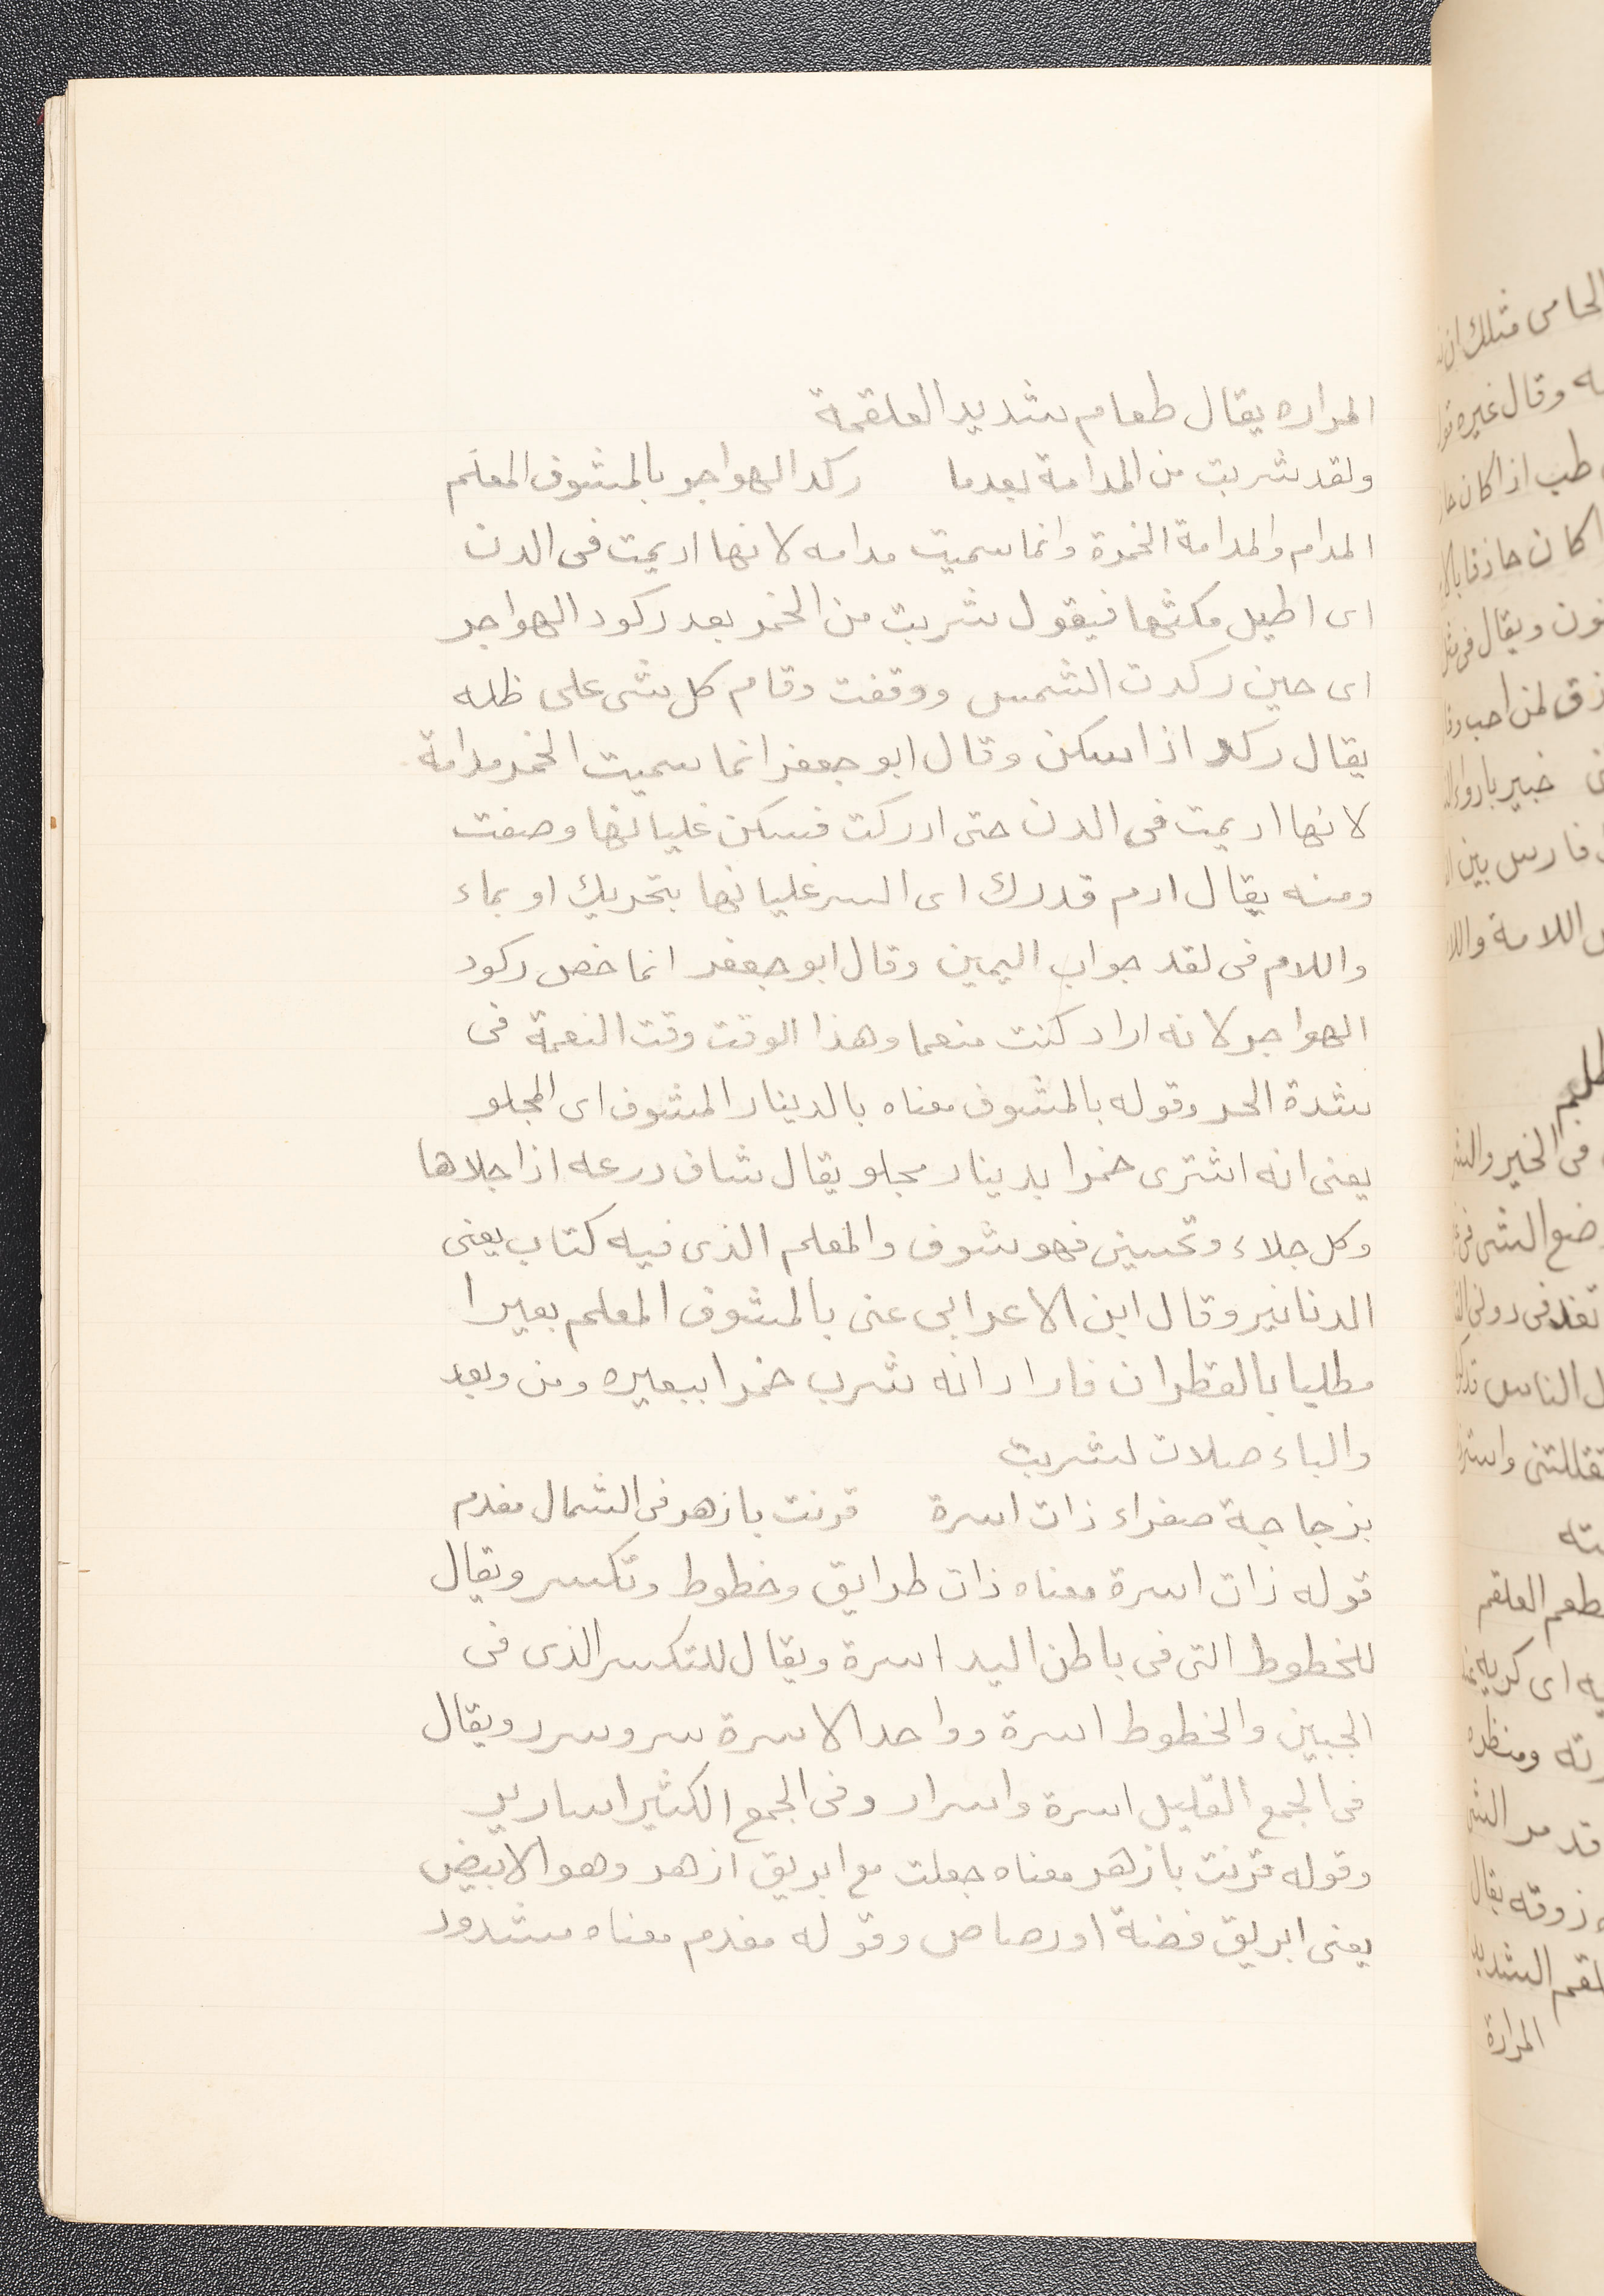 المراره يقال طعام شديد العلقمة
ولقد شربت من المدامة بعدما ركد الهواجر بالمشوف المعلم
المدام والمدامة الخمرة وانما سميت مدامه لانها اديمت فى الدن
اى اطيل مكثها فيقول شربت من الخمر بعد ركود الهواجر
اى حين ركدت الشمس ووقفت وقام كل شى على ظله
يقال ركد اذا سكن وقال ابو جعفر انما سميت الخمر مدامة
لانها اديمت فى الدن حتى ادركت فسكن غليانها وصفت
ومنه يقال ادم قدرك اى اكسر غليانها بتحريك او بماء
واللام فى لقد جواب اليمين وقال ابو جعفر انما خص ركود
الهواجر لانه اراد كنت منعما وهذا الوقت وقت النعمة فى
شدة الحر وقوله بالمشوف معناه بالدينار المشوف اى المجلو
يعنى انه اشترى خمرا بدينار مجلو يقال شاف درعه اذا جلاها
وكل جلاء وتحسين فهو شوف والمعلم الذى فيه كتاب يعنى
الدنانير وقال ابن الاعرابى عنى بالمشوف المعلم بعيرا
مطليا بالقطران فاراد انه شرب خمرا ببعيره ومن وبعد
والباء صلات لشربت
بزجاجة صفراء ذات اسرة قرنت بازهر فى الشمال مفدم
قوله ذات اسرة معناه ذات طرايق وخطوط وتكسر ويقال
للخطوط التى فى باطن اليد اسرة ويقال للتكسر الذى فى
الجبين والخطوط اسرة وواحد الاسرة سر وسرر ويقال
فى الجمع القليل اسرة واسرار وفى الجمع الكثير اسارير
وقوله قرنت بازهر معناه جعلت مع ابريق ازهر وهو الابيض
يعنى ابريق فضة او رصاص وقوله مفدم معناه مشدود